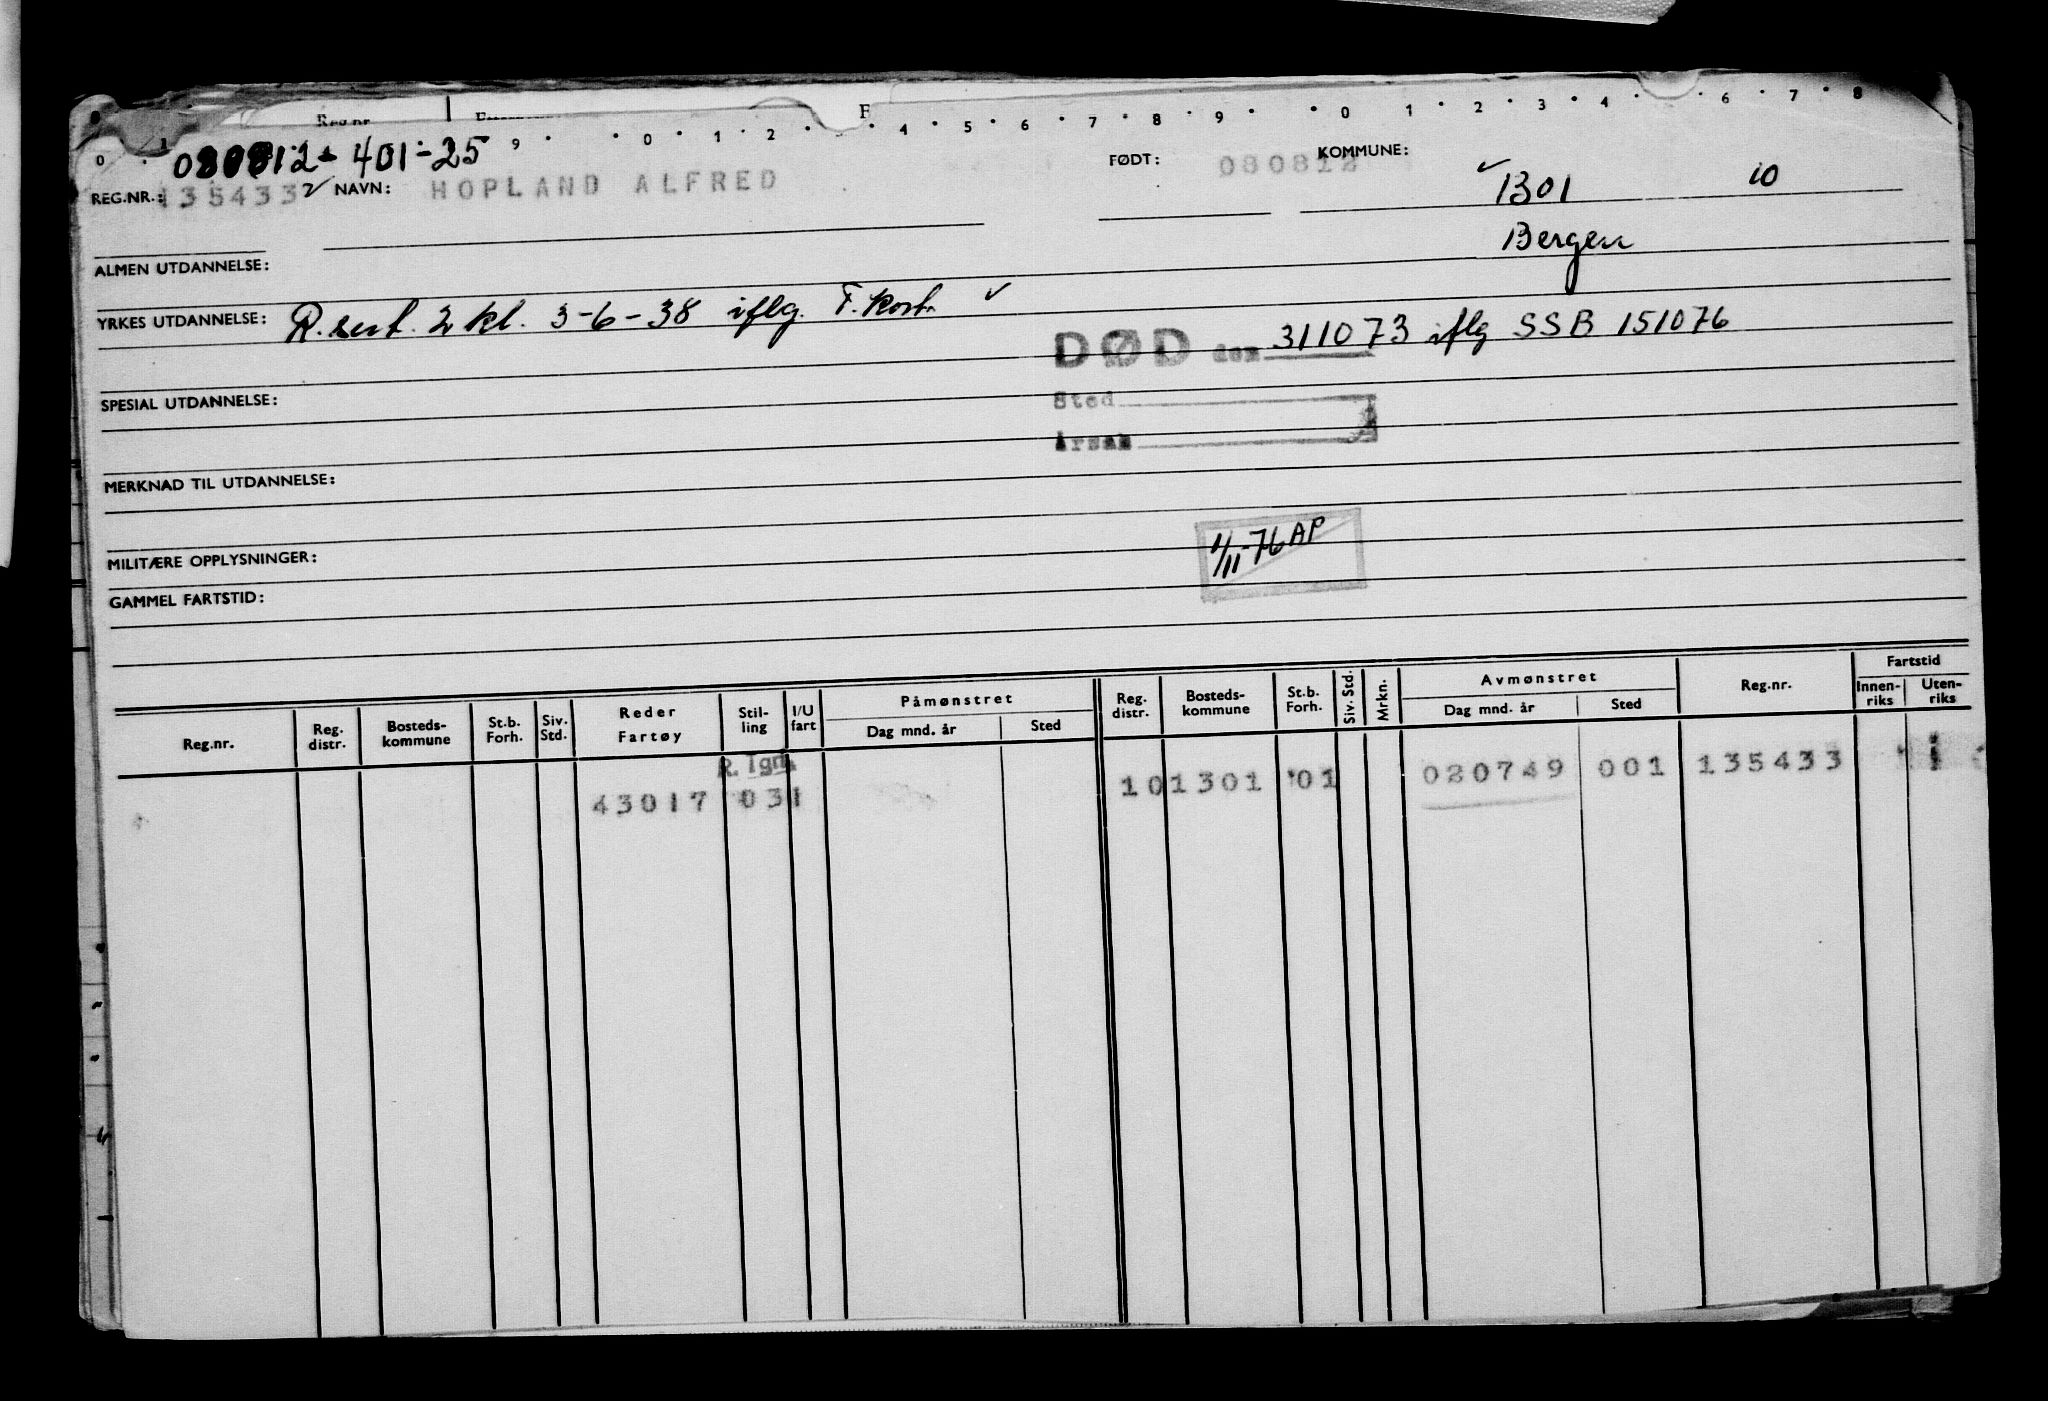 Reg.nr.
0 1 9 0 1 2 4 5 6 7 8 9 0 1 2 3 4 6 7 8
080812-401-25
REG.NR.: 135433 NAVN: HOPLAND ALFRED FØDT: 080812 KOMMUNE: 1301 10
Bergen
ALMEN UTDANNELSE:
YRKES UTDANNELSE: R. sert. 2 kl. 3-6-38 iflg. F. kort.
DØD den 311073 iflg SSB 151076
SPESIAL UTDANNELSE:
Sted
Årsak
MERKNAD TIL UTDANNELSE:
1/11-76 AP
MILITÆRE OPPLYSNINGER:
GAMMEL FARTSTID:
Reg.nr. Reg. distr. Bosteds-kommune St.b. Forh. Siv. Std. Reder Fartøy Stil-ling I/U fart Påmønstret Dag mnd. år Sted Reg. distr. Bosteds-kommune St.b. Forh. Siv. Std. Mrkn. Avmønstret Dag mnd. år Sted Reg.nr. Fartstid Innen-riks Uten-riks
R. Tgn.
43017 031 101301 01 020749 001 135433 1